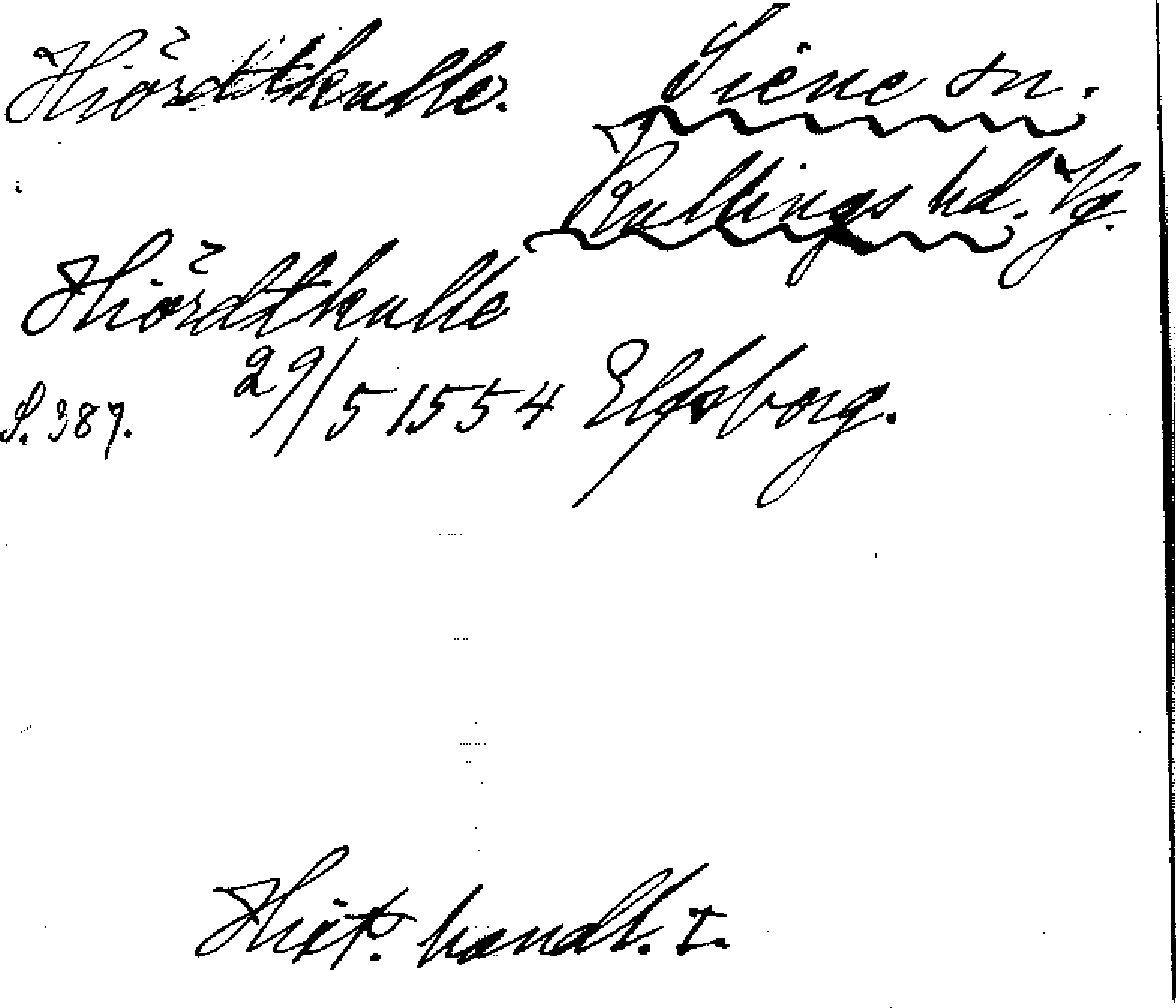 Hiördtkulle. Siene sn.
Kullings hd. Vg.
Hiördtkulle
S. 387. 29/5 1554 Elfsborg.
Hist. handl. I.